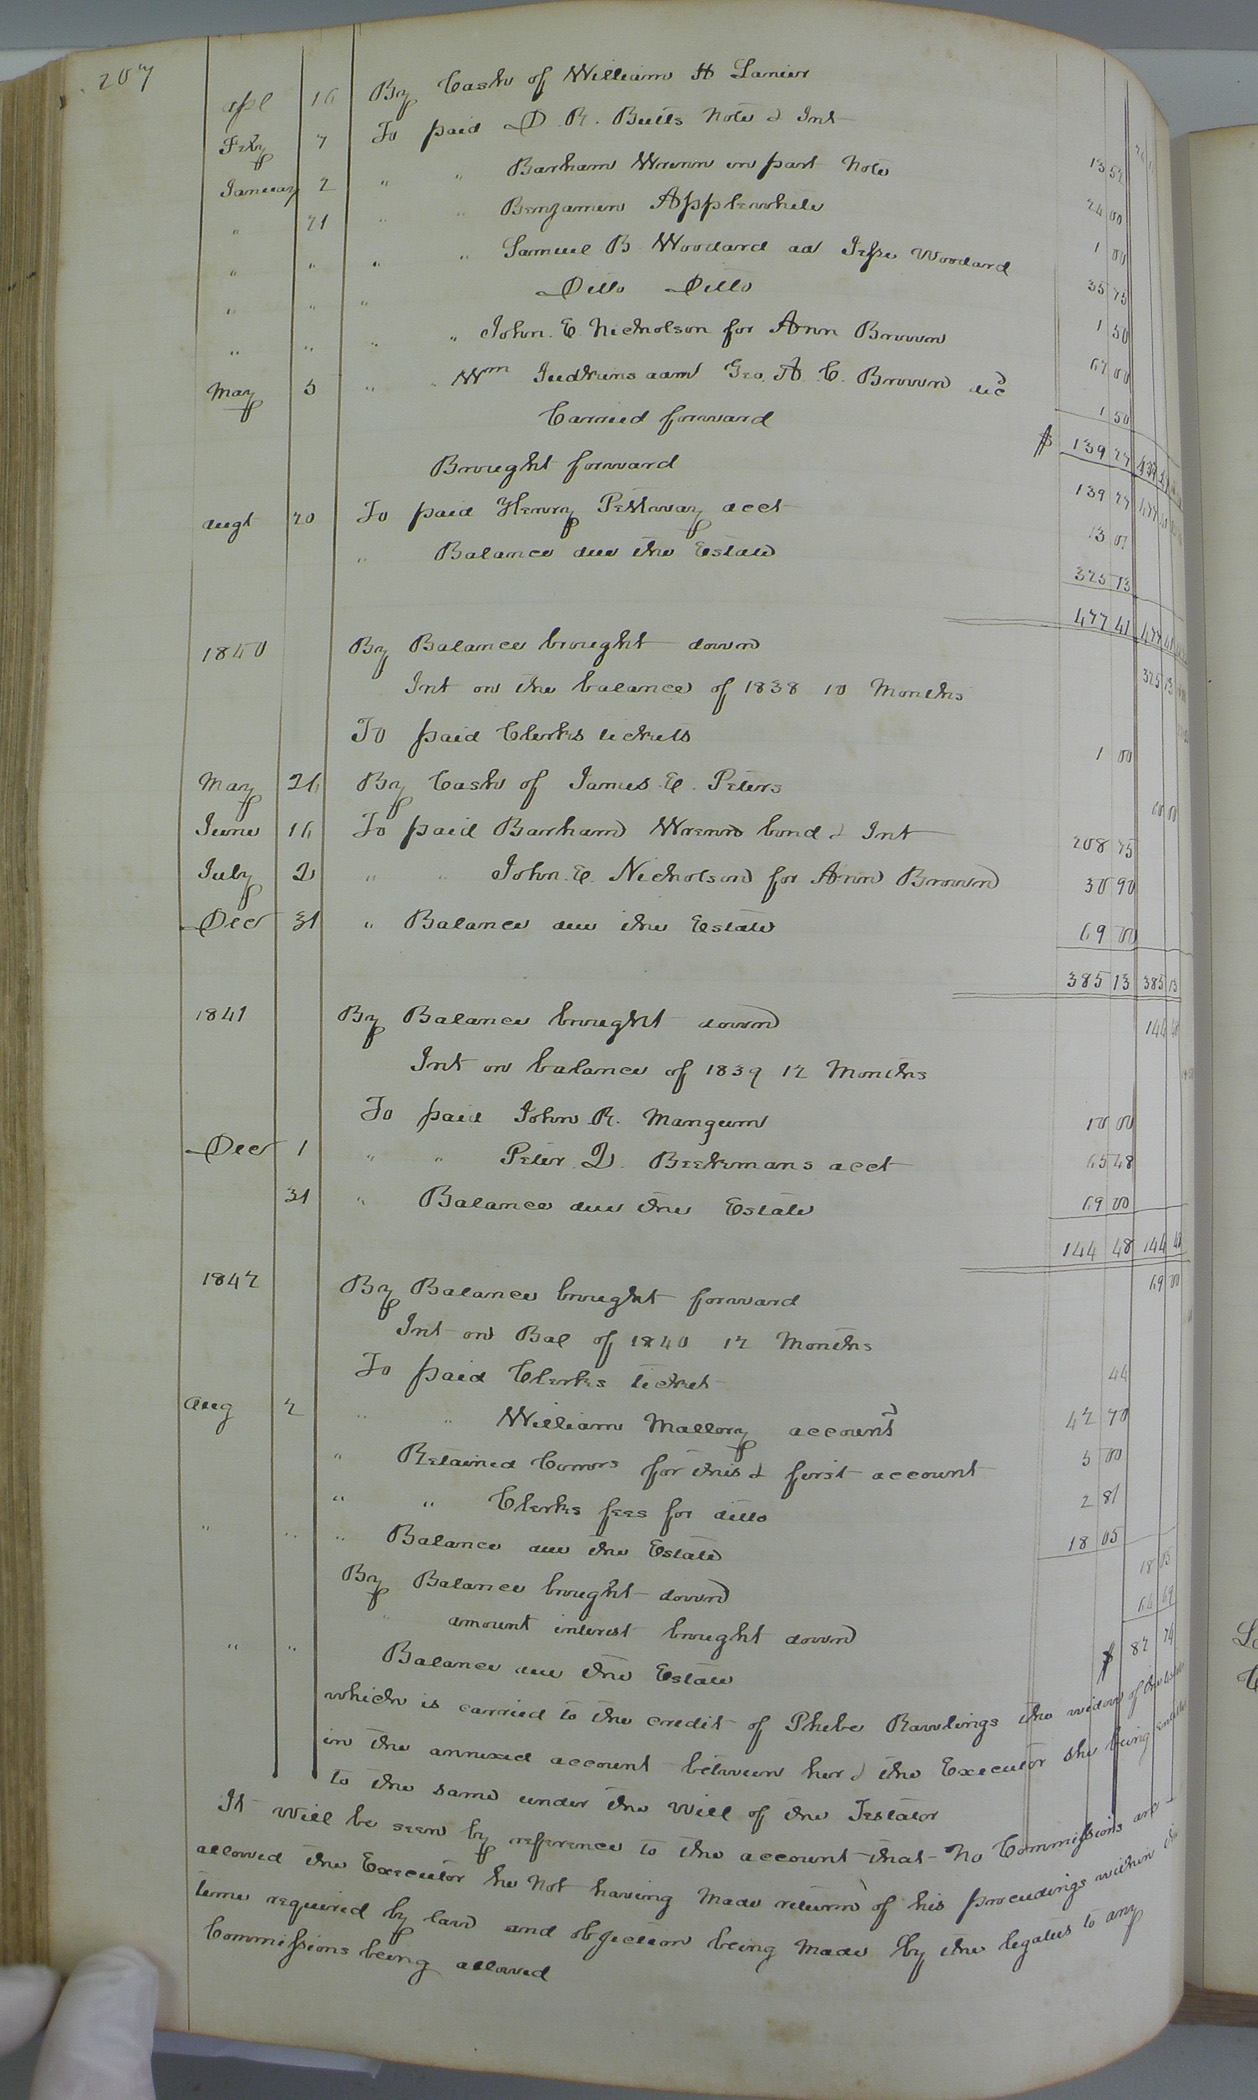 207
Apl 16 By Cash of William H Lanier
Feby 7 To paid D. R. Butts Note & Int 13 52
January 2 " " Barham Wrenn in part Note 24 00
" 21 " " Benjamin Applewhite 1 00
" " " " Samuel B Woodard ad Jesse Woodard 35 75
" " " Ditto Ditto 1 50
" " " " John. E. Nicholson for Ann Brown 61 00
May 5 " " Wm Judkins adm Geo. A. C. Brown decd 1 50
Carried forward $ 139 27
Brought forward 139 27
Augt 20 To paid Henry Pettway acct 13 01
" Balance due the Estate 325 13
477 41 477 41
1840 By Balance brought down 325 13
Int on the balance of 1838 10 Months
To paid Clerks tickets 1 00
May 26 By Cash of James. E. Peters
June 16 To paid Barham Wrenn bond & Int 208 75
July 2 " " John. E. Nicholson for Ann Brown 30 90
Decr 31 " Balance due the Estate 69 00
385 13 385 13
1841 By Balance brought down 144 48
Int on balance of 1839 12 Months
To paid John R. Mangum 10 00
Decr 1 " " Peter D. Beekmans acct 65 48
31 " Balance due the Estate 69 00
144 48 144 48
1842 By Balance brought forward 69 00
Int on Bal of 1840 12 Months
To paid Clerks ticket 44
Aug 2 " " William Mallory account 42 70
" Retained Comrs for this & first account 5 00
" " Clerks fees for ditto 2 81
" " " Balance due the Estate 18 05
By Balance brought down 18 05
" amount interest brought down 64 69
" " Balance due the Estate $ 82 74
which is carried to the credit of Phebe Rawlings the widow of the
in the annexed account between her & the Executor she being entitled
to the same under the will of the Testator
It will be seen by refference to the account that no Commissions are
allowed the Executor he not having made return of his proceedings within the
time required by law and objection being made by the legatees to any
Commissions being allowed